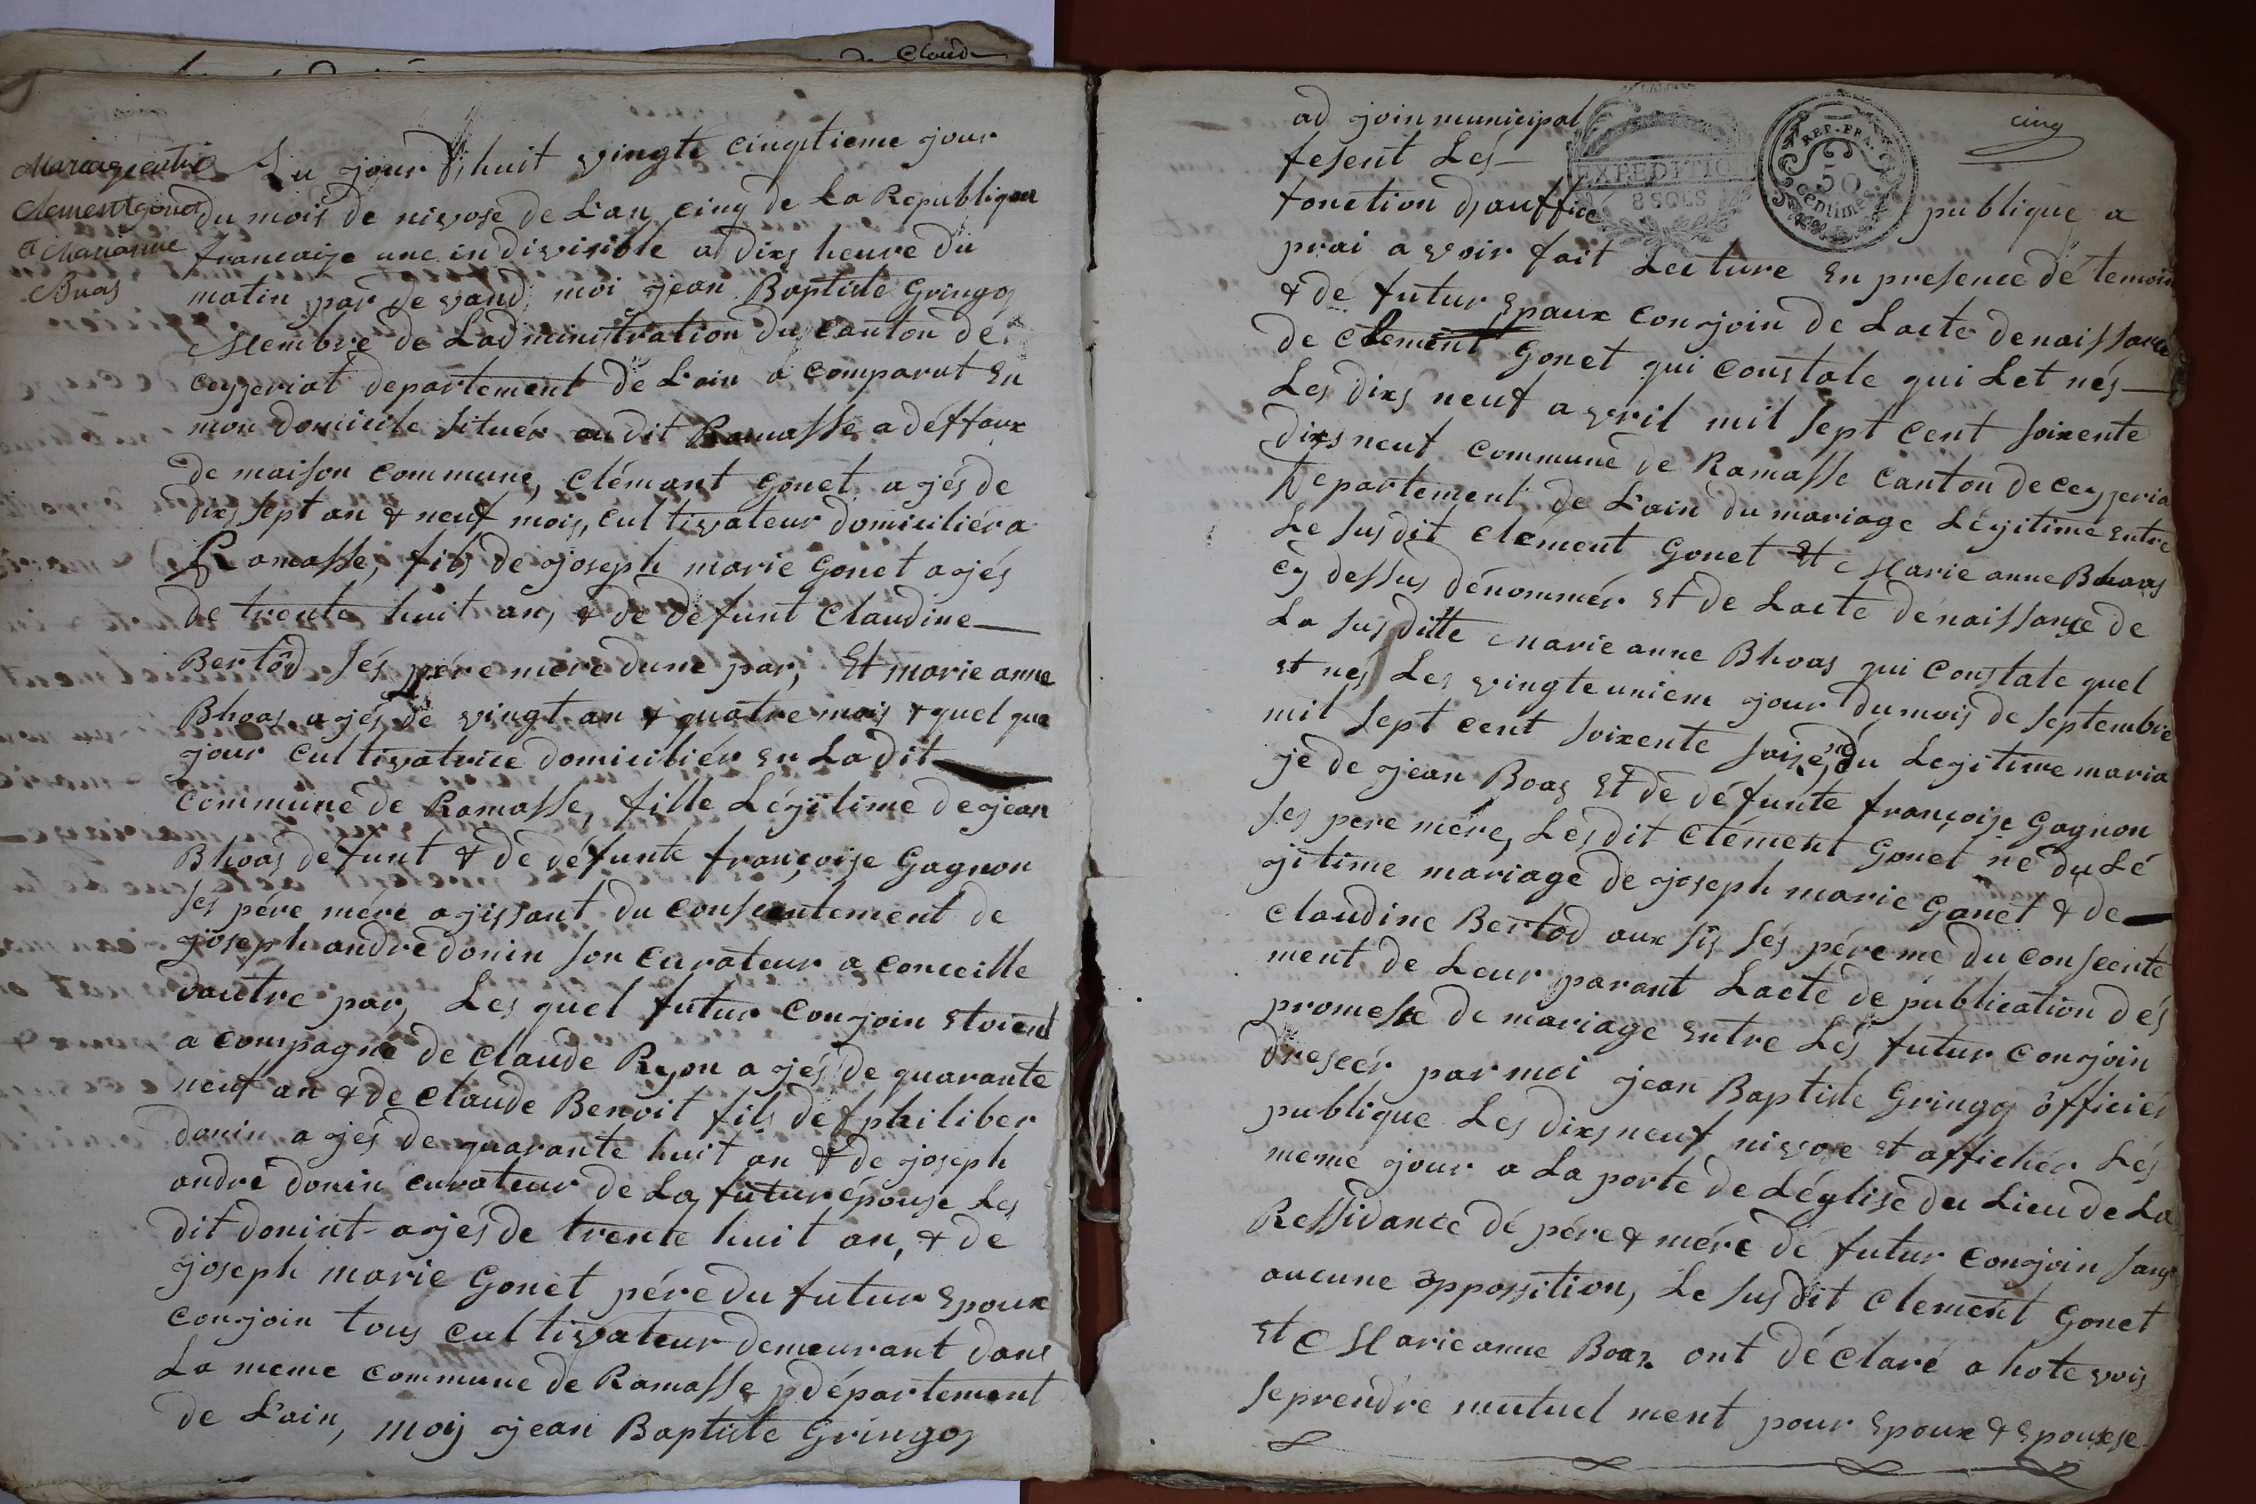 Claude
Mariage entre
Clement gonet
et Marianne
Buas
Au jour dhuit vingte cinqtieme jour
du mois de nivose de L'an cinq de La Republique
francaise une indivisible a dixs heure du
matin par de vand moi jean Baptiste Gringoz
Membre de Ladministration du canton de
ceyzeriat departement de L'ain a comparut En
mon domicile situér au dit Ramasse a déffaux
de maison commune, clémant gonet ajés de
dixs sept an & neuf mois, cultivateur domiciliér a
Ramasse, fils de joseph marie gonet ajés
de trente huit an, & de défunt claudine
Bertôd sés pére mére dune par, Et marie anne
Bhoas ajés de vingt an & quatre mois & quel que
jour cultivatrice domiciliér En La dit
commune de Ramasse, fille Légitime de jean
Bhoas defunt & de défunte françoise Gagnon
ses pére mére agissant du consentement de
joseph andré donin son curateur a conceille
dautre par, Les quel futur conjoin Etoient
a compagné de claude Ryon ajés de quarante
neuf an & de claude Benoit fils de f philiber
donin ajés de quarante huit an & de joseph
andré donin curateur de La futur épouse Les
dit donint ajés de trente huit an, & de
joseph marie Gonet pére du futur Epoux
conjoin tous cultivateur demeurant dans
La meme commune de Ramasse département
de L'ain, moy jean Baptiste Gringoz
cinq
ad join municipal
fesent Lés
fonction d'auffice publique a
EXPEDITION
8 SOLS
REP. FR.
50
centimes
prai avoir fait Lecture En presence dé temoin
& dé futur Epaux conjoin de Lacte de naissance
de clement Gonet qui constate qui Let nés
Les dixs neuf avril mil sept cent soixente
dixs neuf commune de Ramasse canton de ceyzeria
département de L'ain du mariage Légitime Entre
Le susdit clément Gonet Et Marie anne Bhoas
cy dessus dénommér Et de Lacte de naissance de
La sus ditte marie anne Bhoas qui constate quel
et nés Les vingte uniem jour du mois de septembre
mil sept cent soixente saize, né du Legitime maria
je de jean Boas Et de défunte françoise Gagnon
ses pere mére, Les dit clément Gonet né du Lé
gitime mariage de joseph marie Gonet & de
claudine Bertod aux sis sés pére me du consente
ment de Leur parant Lacte de publication dés
promesse de mariage Entre Lés futur conjoin
dresér par moi jean Baptiste Gringoz officiér
publique Les dixs neuf nivose Et affichér Lés
meme jour a La porte de Léglise du Lieu de La
Ressidance dé pére & mére dé futur conjoin sans
aucune oppossition, Le susdit clement Gonet
Et Marie anne Boaz ont déclaré a hote vois
se prendre mutuel ment pour Epoux & Epouxse